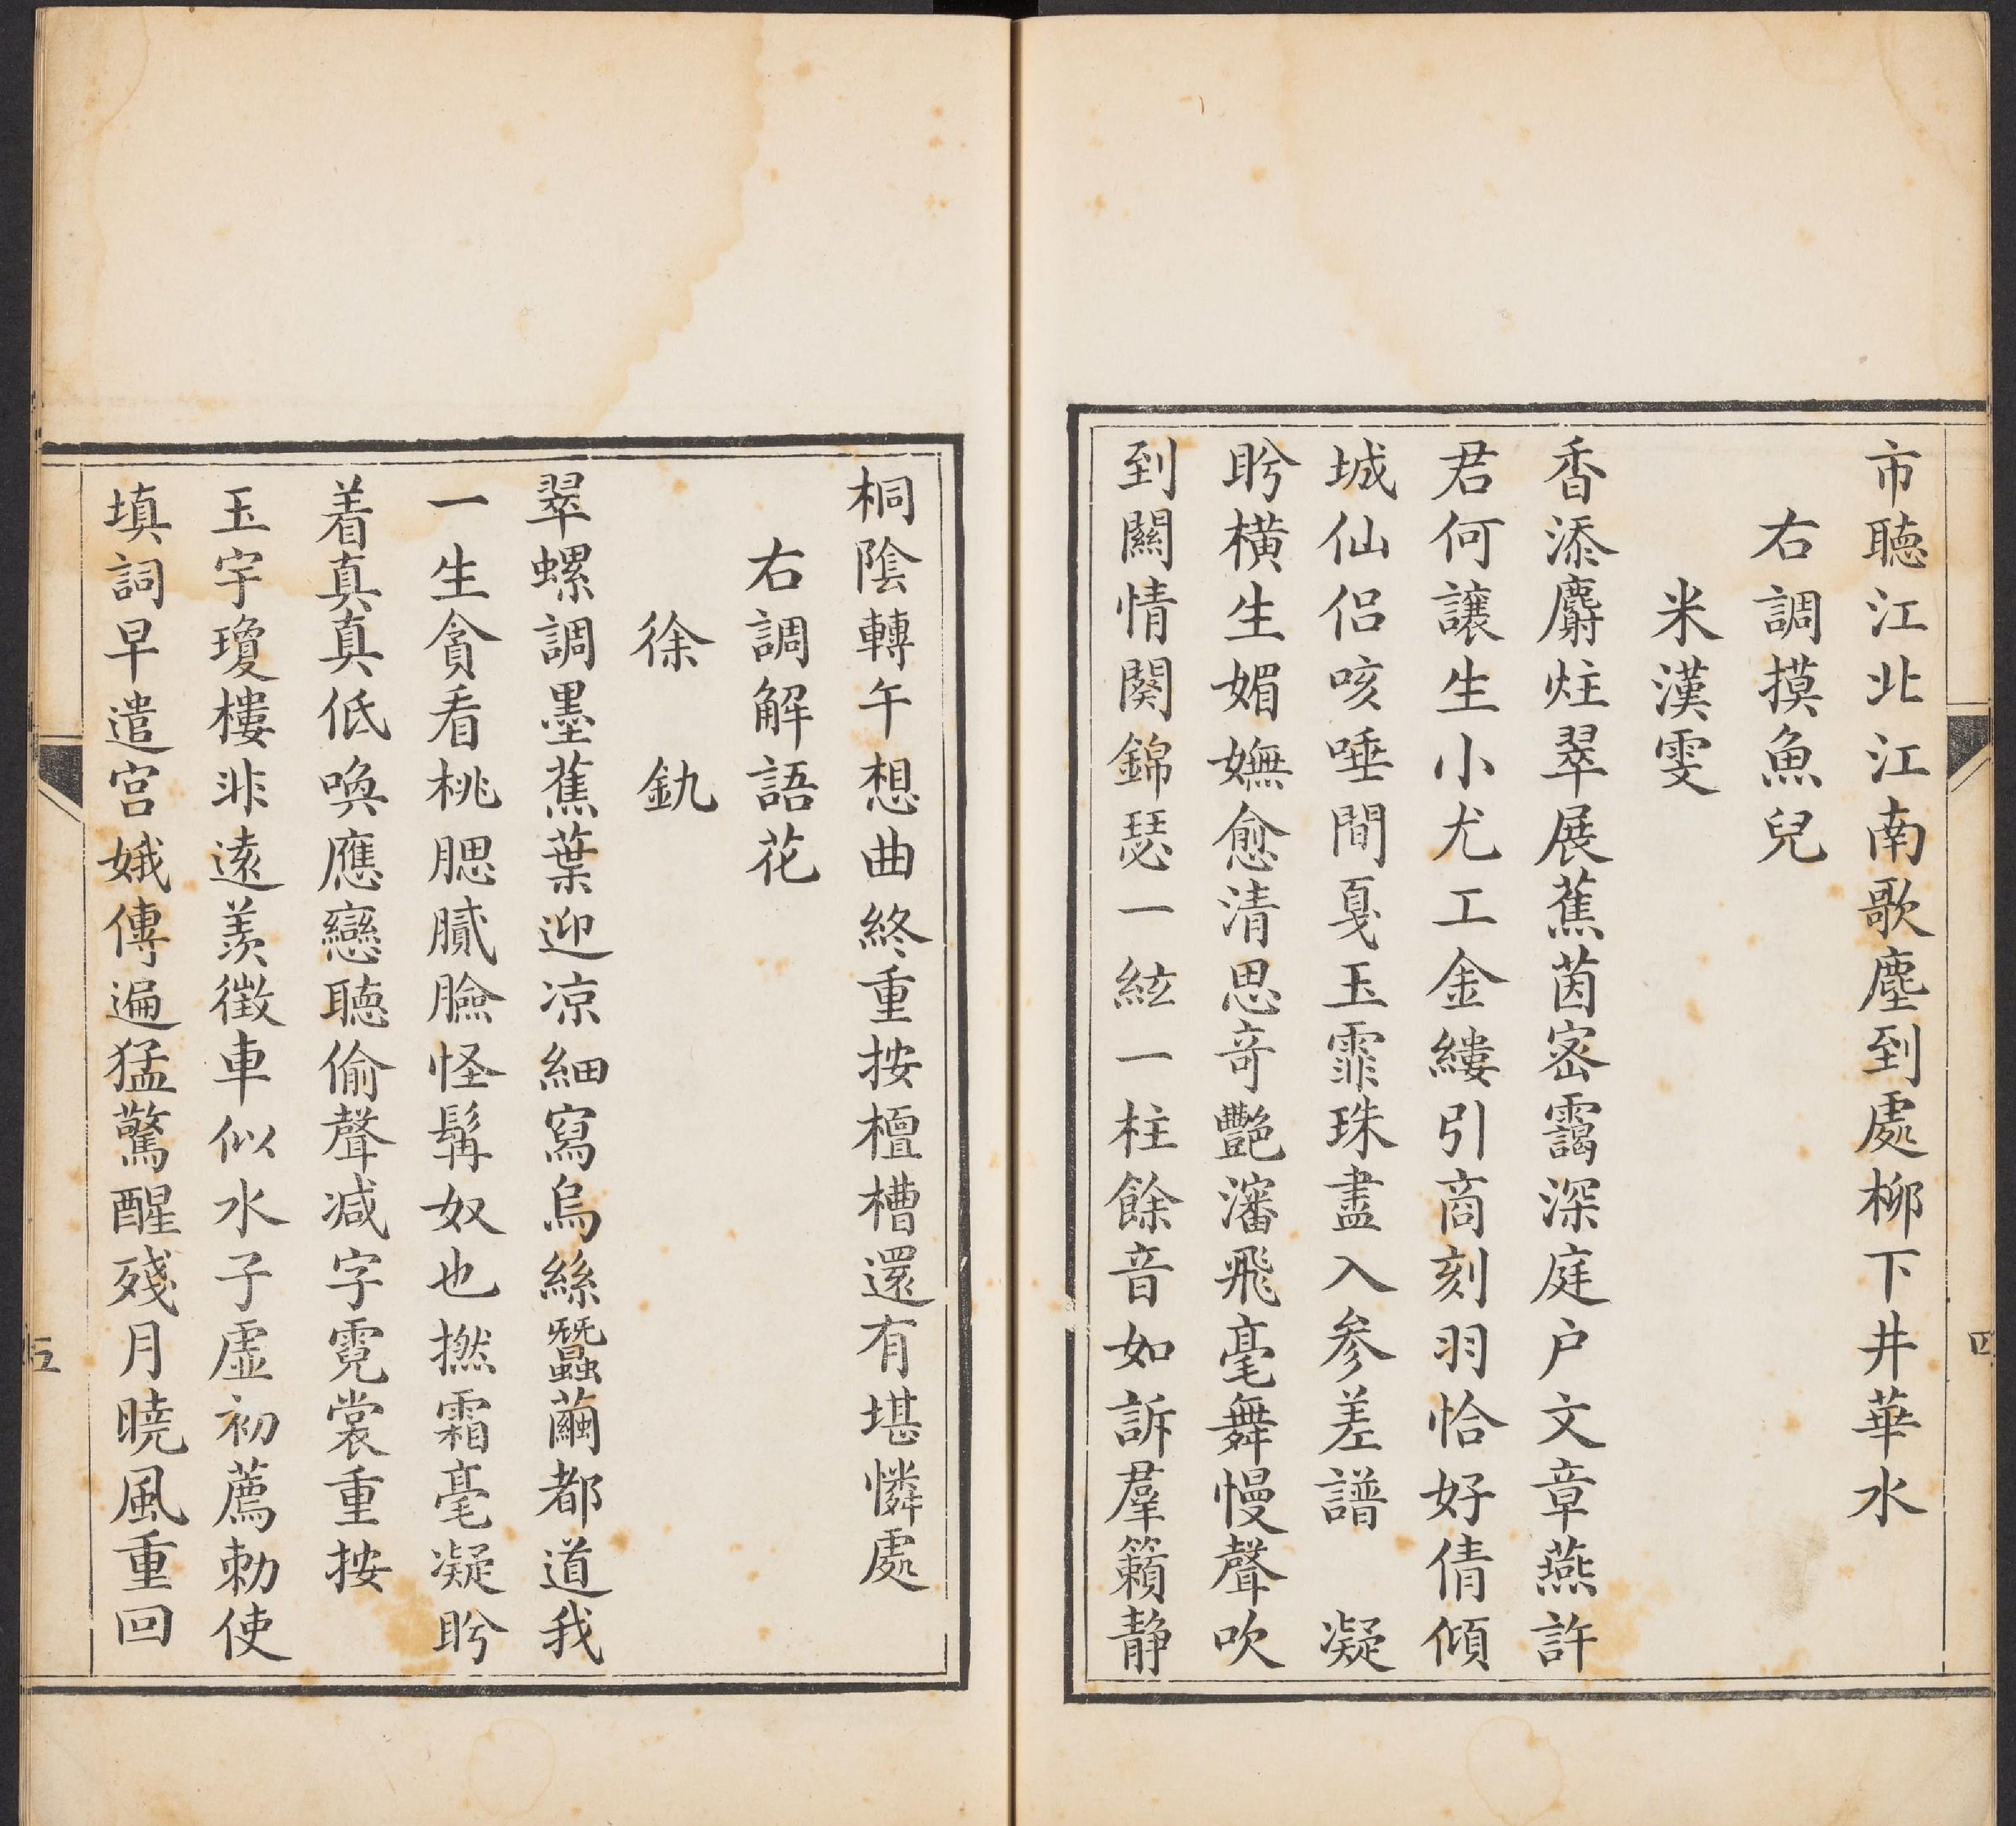 市聽江北江南歌塵到處柳下井華水
右調摸魚兒
米漢雯
香添麝炷翠展蕉茵密靄深庭户文章燕許
君何讓生小尤工金縷引商刻羽恰好倩傾
城仙侣咳唾間戛玉霏珠盡入参差譜　凝
盼横生媚嫵愈清思竒艷瀋飛毫舞慢聲吹
到關情闋錦瑟一絃一柱餘音如訴羣籟静
四
桐陰轉午想曲終重按檀槽還有堪憐處
右調解語花
徐　釚
翠螺調墨蕉葉迎凉細寫烏絲蠶繭都道我
一生貪看桃腮膩臉怪髯奴也撚霜毫凝盼
着真真低喚應戀聽偷聲减字霓裳重按
玉宇瓊樓非遠羨徵車似水子虛初薦勅使
填詞早遣宫娥傳遍猛驚醒殘月曉風重回
五